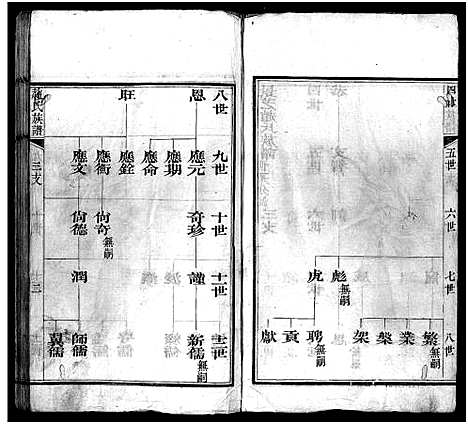 五世
六世
七世
彪無嗣
虎
八世
繁無嗣
業
槃
架
聘無嗣
貢
獻
族譜
三支
十三
八世
恩
旺
九世
應元
應期
應侖
應銓
應衡
應文
十世
奇珍
尙奇無嗣
尙德
十一世
謹
潤
十二世
新儒無嗣
師儒
翼儒